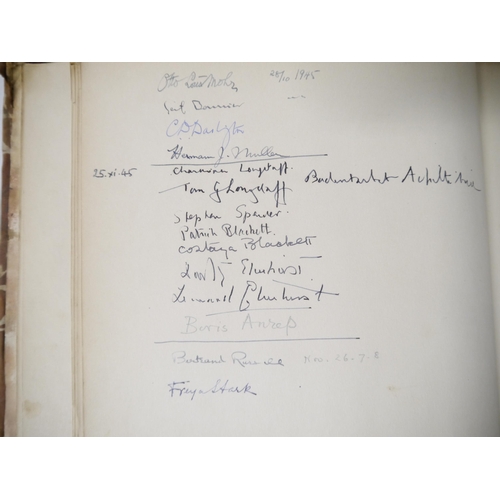 Otto Louis Mohr 28/10 1945
C D Darlington
Hermann J. Muller
25.xi.45 Charmian Longstaff
Tom G Longstaff
Stephen Spender.
Patrick Blackett.
Costanza Blackett
Dorothy Elmhirst.
Leonard Elmhirst
Boris Anrep
Bertrand Russell Nov. 26. 7. 8
Freya Stark